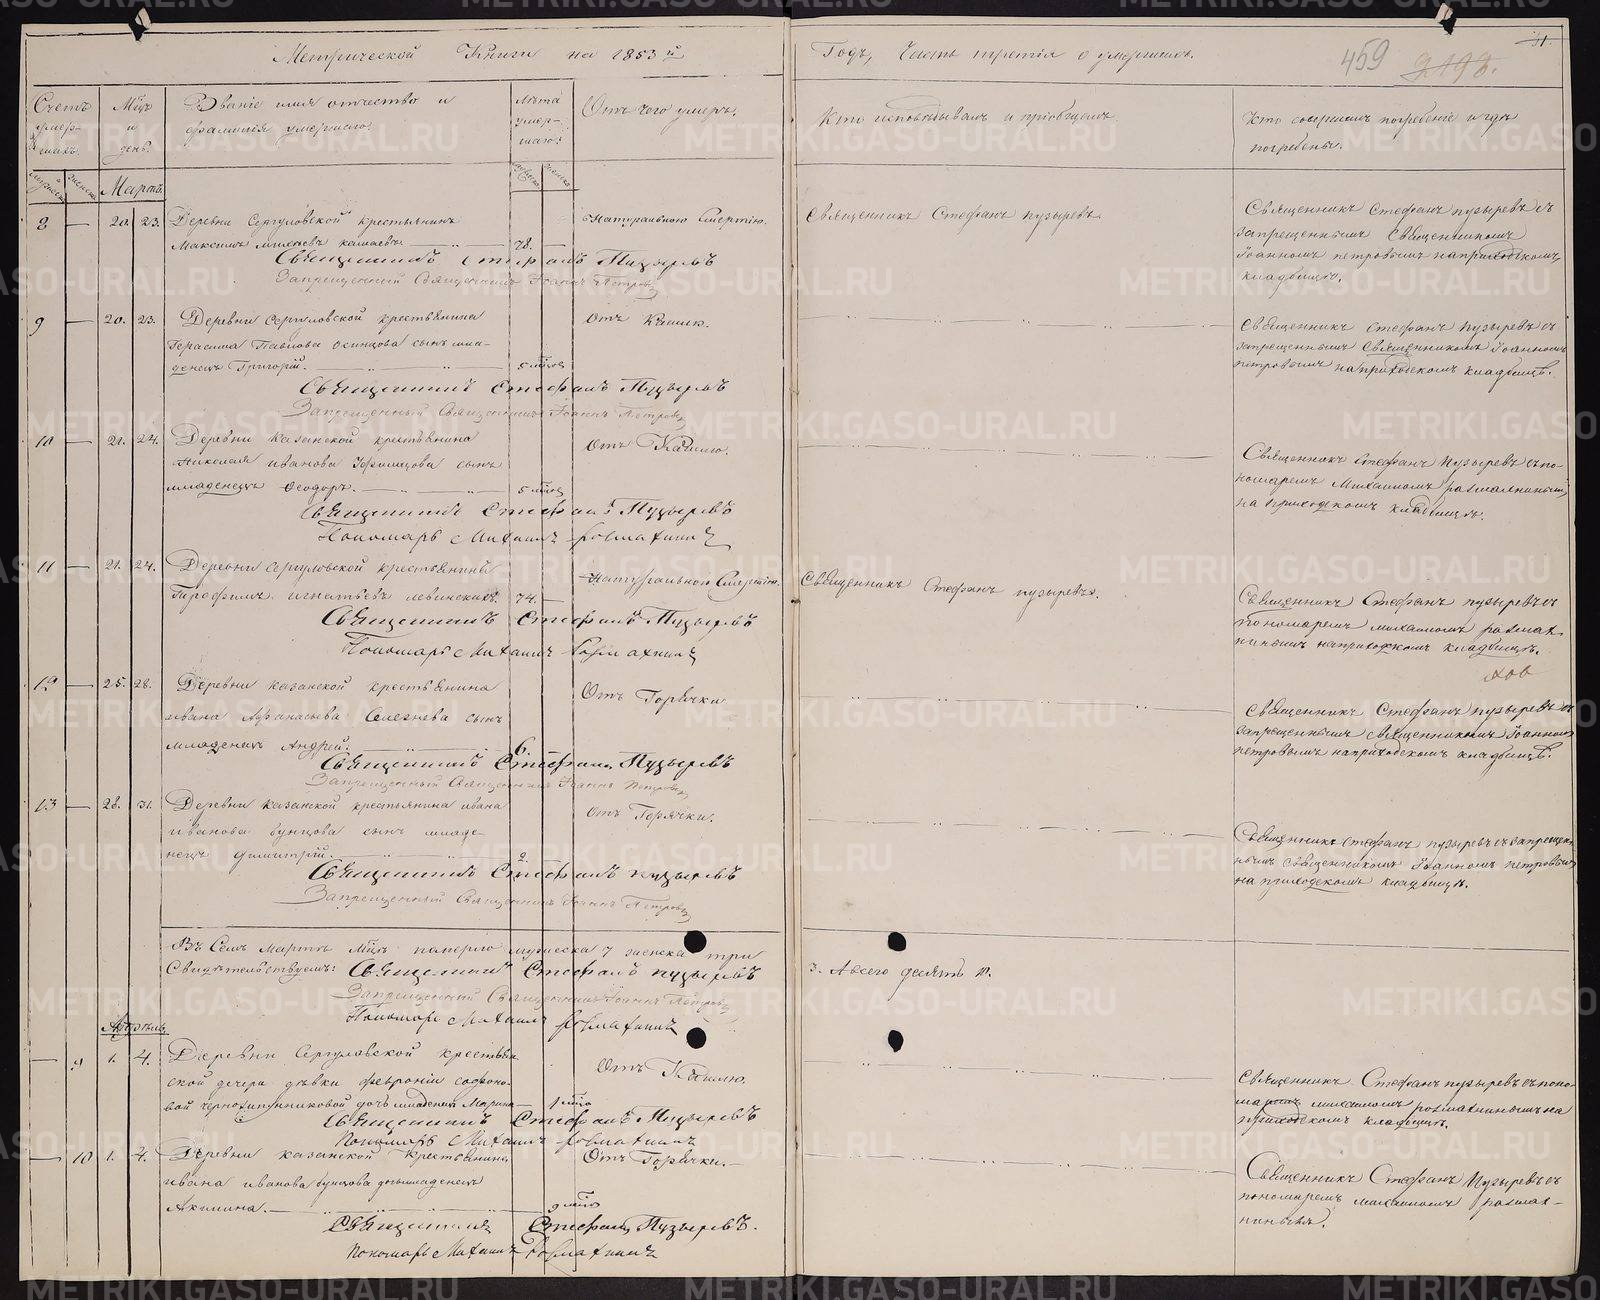 Метрической Книги на 1853й
Годъ, Часть третія о умершихъ.
459
Счетъ умер-
шихъ.
Мцъ
и
день.
Званіе имя отчество и
фамилія умершаго.
Лѣта
умер-
шаго.
Отъ чего умеръ.
Кто исповѣдывалъ и пріобщалъ.
Кто совершалъ погребеніе и гдѣ
погребены.
Мартъ.
8 — 20. 23. Деревни Сергуловской крестьянинъ
Максимъ
78.
Натуральною Смертію.
Священникъ Стефанъ Пузыревъ
Священникъ Стефанъ Пузыревъ съ
запрещеннымъ Священникомъ
Іоанномъ Петровымъ на приходскомъ
кладбищѣ.
Священникъ Стефанъ Пузыревъ
Запрещенный Священникъ Іоаннъ Петровъ
9 — 20. 23. Деревни Сергуловской крестьянина
Герасима Павлова Осинцова сынъ мла-
денецъ Григорій.
5 мцов
Отъ Кашлю.
Священникъ Стефанъ Пузыревъ съ
запрещеннымъ Священникомъ Іоанномъ
Петровымъ на приходскомъ кладбищѣ.
Священникъ Стефанъ Пузыревъ
Запрещенный Священникъ Іоаннъ Петровъ
10 — 21. 24. Деревни Казанской крестьянина
Николая Иванова сынъ
младенецъ Ѳеодоръ.
5 мцов
Отъ Кашлю.
Священникъ Стефанъ Пузыревъ съ по-
номаремъ Михаиломъ
на приходскомъ кладбищѣ.
Священникъ Стефанъ Пузыревъ
Пономарь Михаилъ
11 — 21. 24. Деревни Сергуловской крестьянинъ
Трофимъ Игнатьевъ
74.
Натуральною Смертію.
Священникъ Стефанъ Пузыревъ.
Священникъ Стефанъ Пузыревъ съ
пономаремъ Михаиломъ
на приходскомъ кладбищѣ.
Священникъ Стефанъ Пузыревъ
Пономарь Михаилъ
12 — 25. 28. Деревни Казанской крестьянина
Ивана Афанасьева Селезнева сынъ
младенецъ Андрей.
6.
Отъ Горячки
Священникъ Стефанъ Пузыревъ съ
запрещеннымъ Священникомъ Іоанномъ
Петровымъ на приходскомъ кладбищѣ.
Священникъ Стефанъ Пузыревъ
Запрещенный Священникъ Іоаннъ Петровъ
13 — 28. 31. Деревни Казанской крестьянина Ивана
Иванова Бунцова сынъ младе-
нецъ Димитрій.
2.
Отъ Горячки.
Священникъ Стефанъ Пузыревъ съ запрещен-
нымъ Священникомъ Іоанномъ Петровымъ
на приходскомъ кладбищѣ.
Священникъ Стефанъ Пузыревъ
Запрещенный Священникъ Іоаннъ Петровъ
Въ Семъ Мартѣ Мцѣ померло мужеска 7 женска три
3. А всего десять 10.
Свидѣтельствуемъ: Священникъ Стефанъ Пузыревъ
Запрещенный Священникъ Іоаннъ Петровъ
Пономарь Михаилъ
Апрѣль
— 9 1. 4. Деревни Сергуловской крестьян-
ской дочери дѣвки Февроніи Софроно-
вой дочь младенецъ Марина
Отъ Кашлю.
Священникъ Стефанъ Пузыревъ съ поно-
маремъ Михаиломъ на
приходскомъ кладбищѣ.
Священникъ Стефанъ Пузыревъ
Пономарь Михаилъ
— 10 1. 4. Деревни Казанской Крестьянина
Ивана Иванова Бунцова дочь младенецъ
Акилина.
Отъ Горячки.
Священникъ Стефанъ Пузыревъ съ
пономаремъ Михаиломъ
Священникъ Стефанъ Пузыревъ.
Пономарь Михаилъ
METRIKI.GASO-URAL.RU